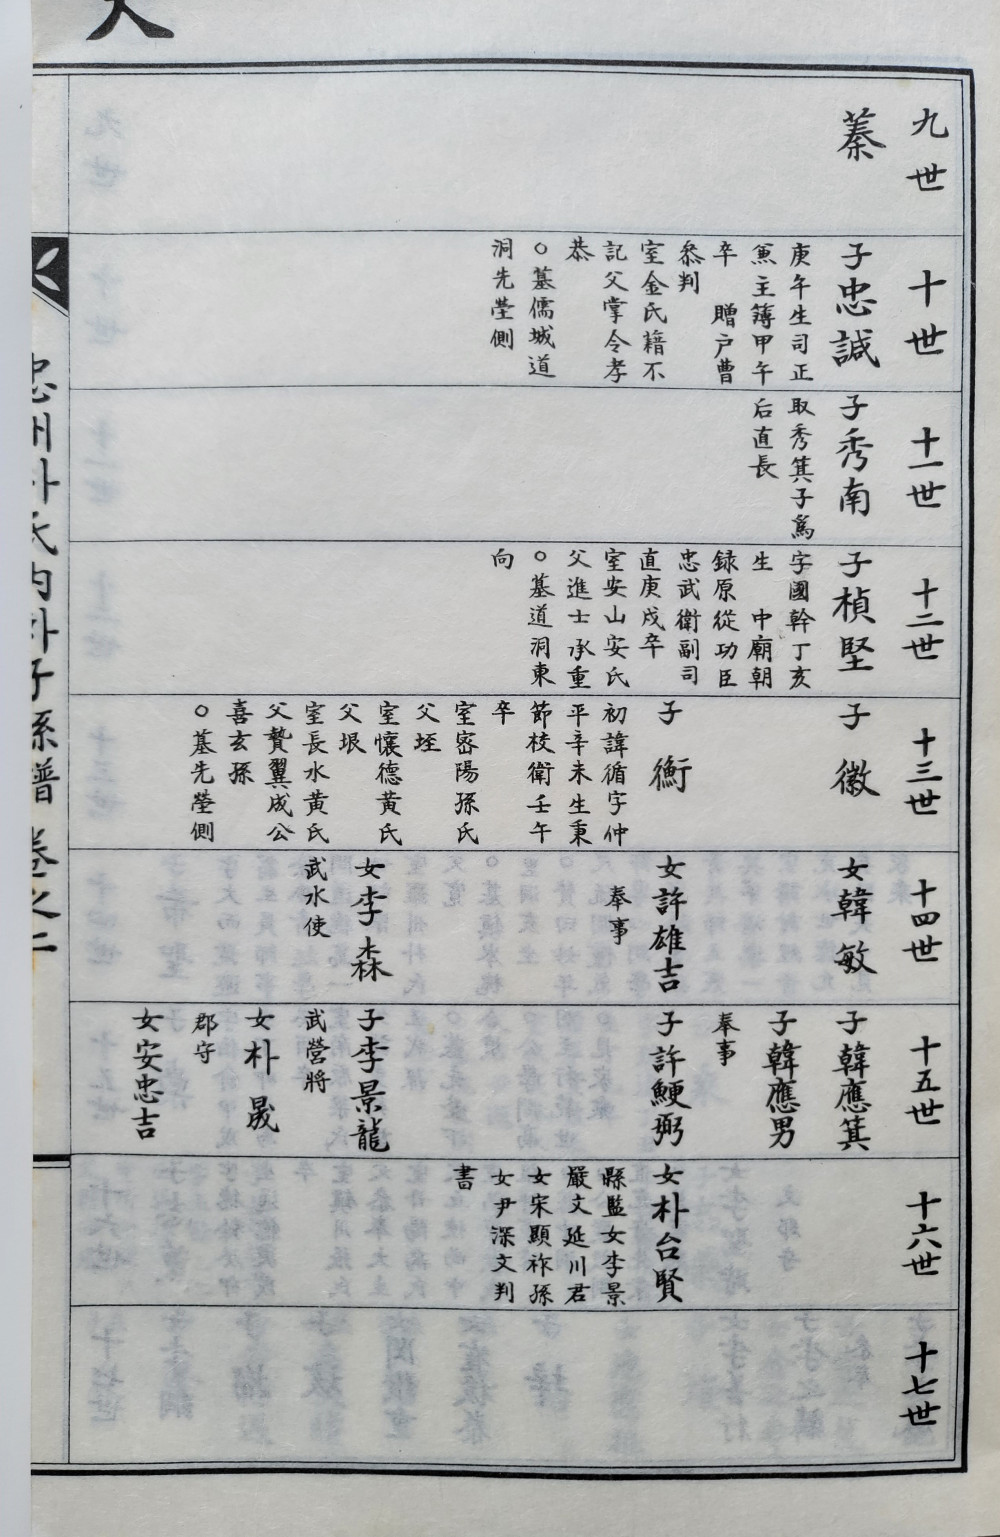 九世
蓁
十世
子忠誠
庚午生司正
兼主簿甲午
卒 贈戶曹
叅判
室金氏籍不
記父掌令孝
恭
○墓儒城道
洞先塋側
十一世
子秀南
取秀箕子爲
后直長
十二世
子楨堅
字國幹丁亥
生 中廟朝
録原從功臣
忠武衛副司
直庚戌卒
室安山安氏
父進士承重
○墓道洞東
向
十三世
子徽
子衡
初諱循字仲
平辛未生秉
節校衛壬午
卒
室密陽孫氏
父姃
室懷德黃氏
父垠
室長水黃氏
父贄翼成公
喜玄孫
○墓先塋側
十四世
女韓敏
女許雄吉
奉事
女李森
武水使
十五世
子韓應箕
子韓應男
奉事
子許鯁弼
子李景龍
武營將
女朴晟
郡守
女安忠吉
十六世
女朴台賢
縣監女李景
嚴文延川君
女宋顯祚孫
女尹深文判
書
十七世
忠州朴氏內朴子孫譜 卷之二